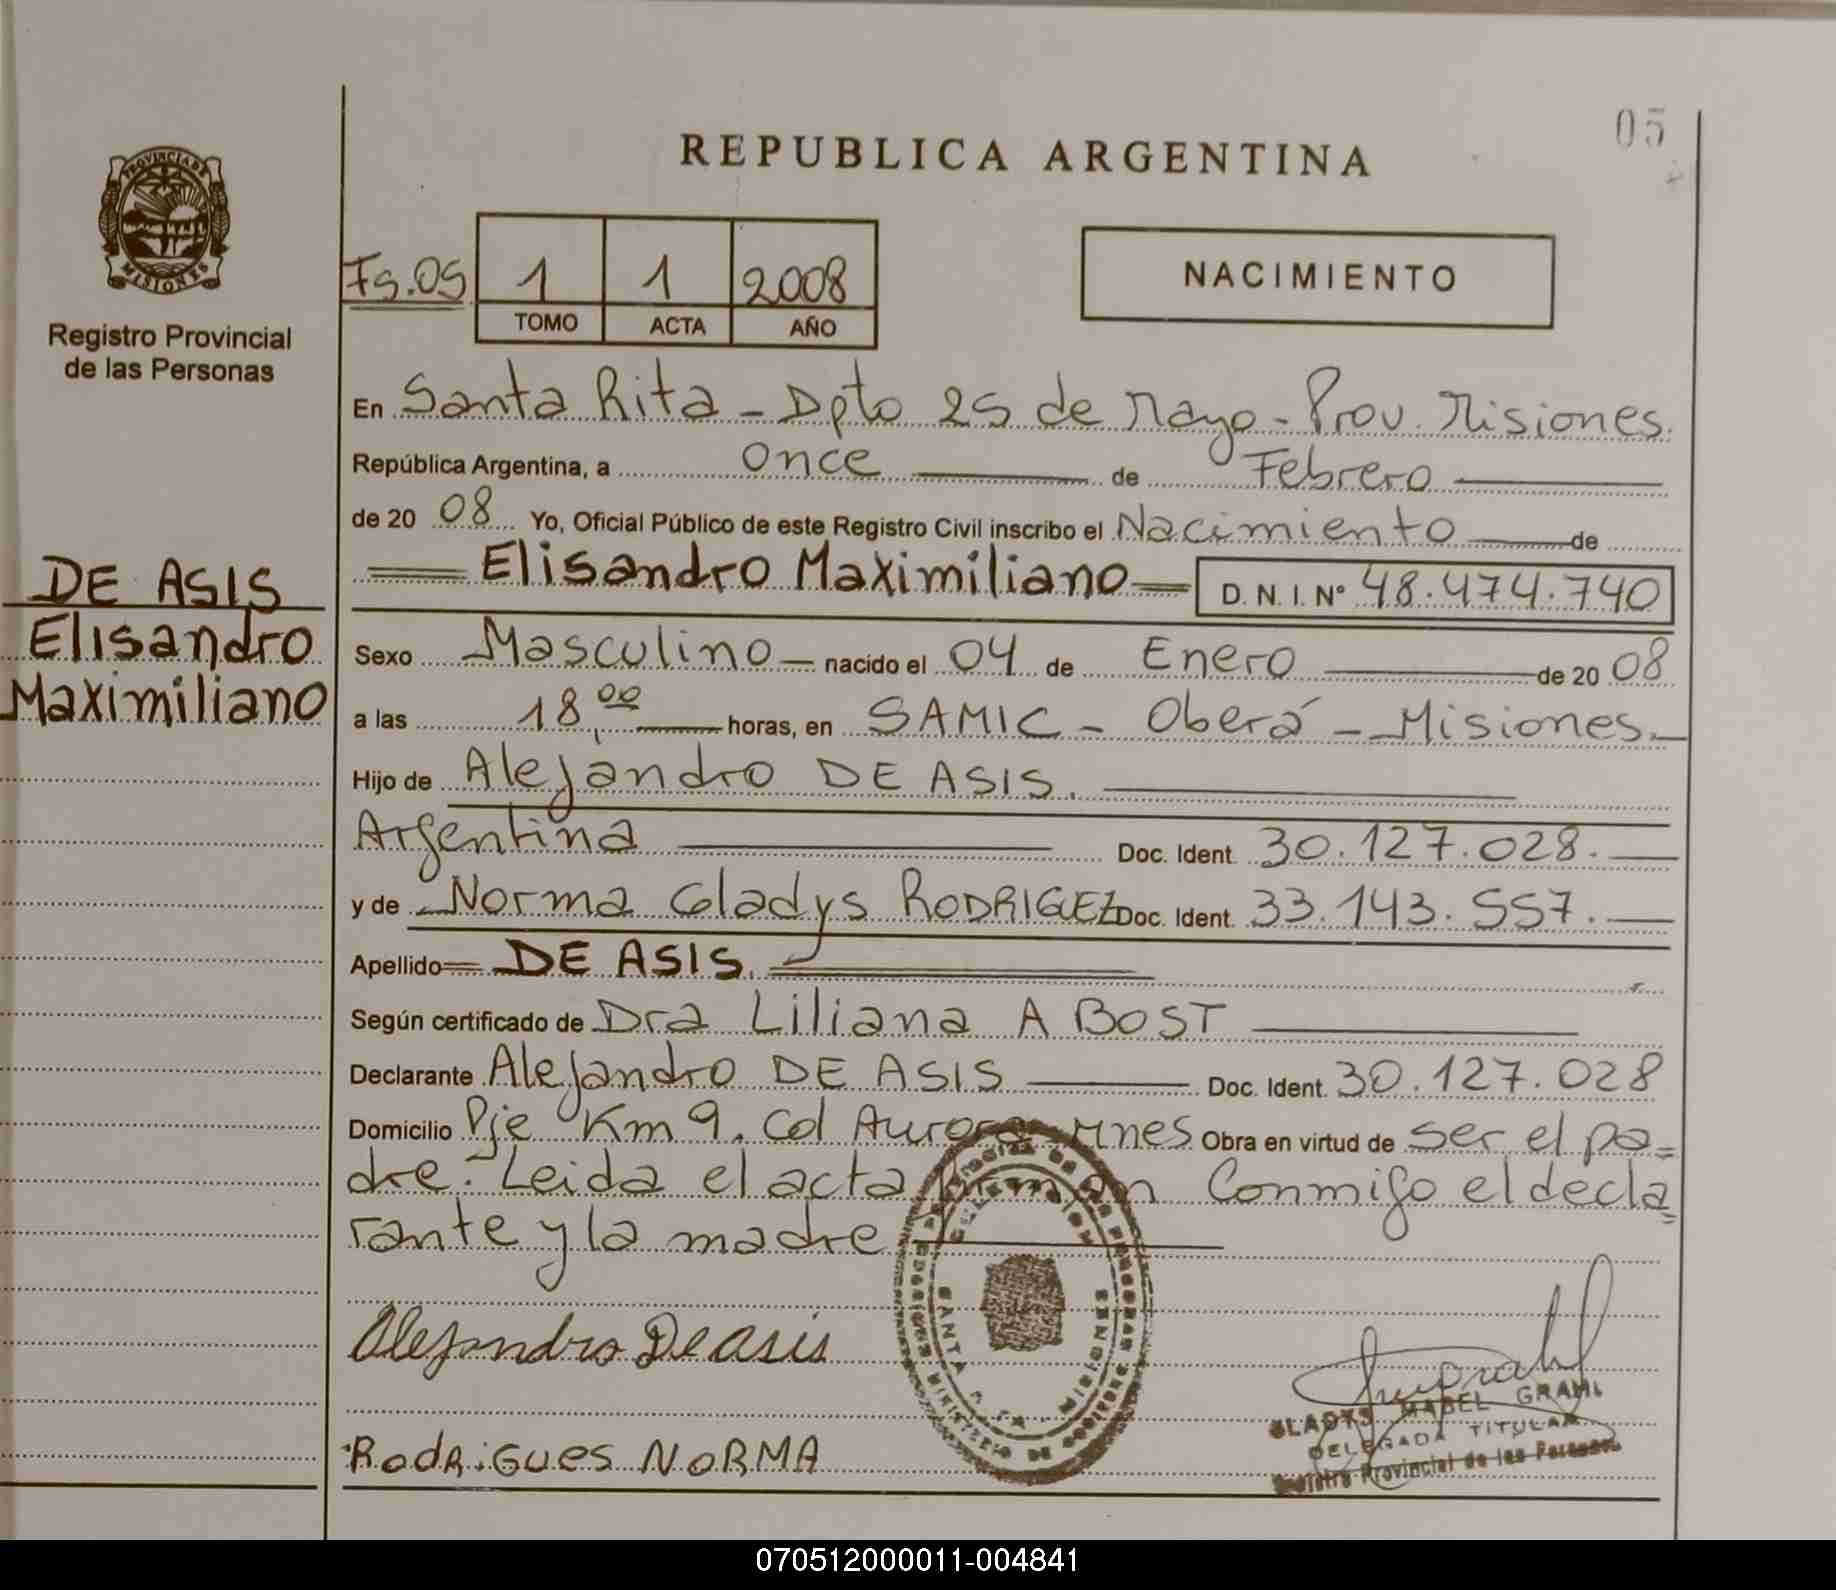 05
REPUBLICA ARGENTINA
PROVINCIA DE
MISIONES
Registro Provincial
de las Personas
Fs.05
1 1 2008
TOMO ACTA AÑO
NACIMIENTO
En Santa Rita - Dpto 25 de Mayo - Prov. Misiones.
República Argentina, a once de Febrero
de 20 08 Yo, Oficial Público de este Registro Civil inscribo el Nacimiento de
Elisandro Maximiliano D. N. I. Nº 48.474.740
DE ASIS
Elisandro
Maximiliano
Sexo Masculino nacido el 04 de Enero de 20 08
a las 18,00 horas, en SAMIC - Oberá - Misiones.
Hijo de Alejandro DE ASIS.
Argentina Doc. Ident. 30.127.028.
y de Norma Gladys RODRIGUEZ Doc. Ident. 33.143.557.
Apellido DE ASIS.
Según certificado de Dra Liliana A BOST
Declarante Alejandro DE ASIS Doc. Ident. 30.127.028
Domicilio Pje Km 9. Col Aurora - Mnes Obra en virtud de ser el pa=
dre. - Leida el acta firman Conmigo el decla=
rante y la madre
Alejandro De asis
RodRiGues NORMA
GLADYS MABEL GRAHL
DELEGADA TITULAR
Registro Provincial de las Personas
070512000011-004841